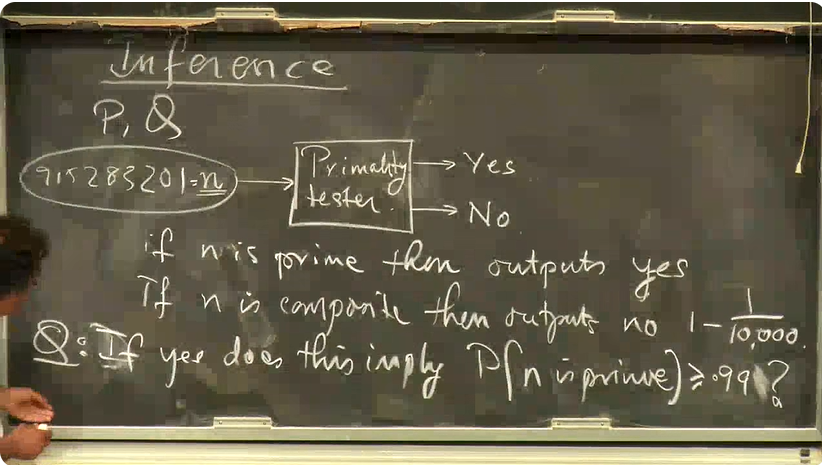 Inference
P, Q
915283201=n → Primality tester. → Yes → No
if n is prime then outputs yes
If n is composite then outputs no 1 - 1/10,000.
Q: If yes does this imply P(n is prime) ≥ .99 ?